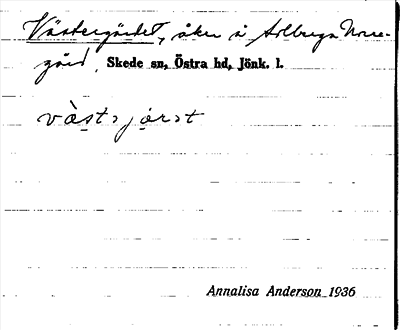 Västergärdet, åker å Arlberga Norre-
gård, Skede sn, Östra hd, Jönk. l.
Annalisa Anderson 1936